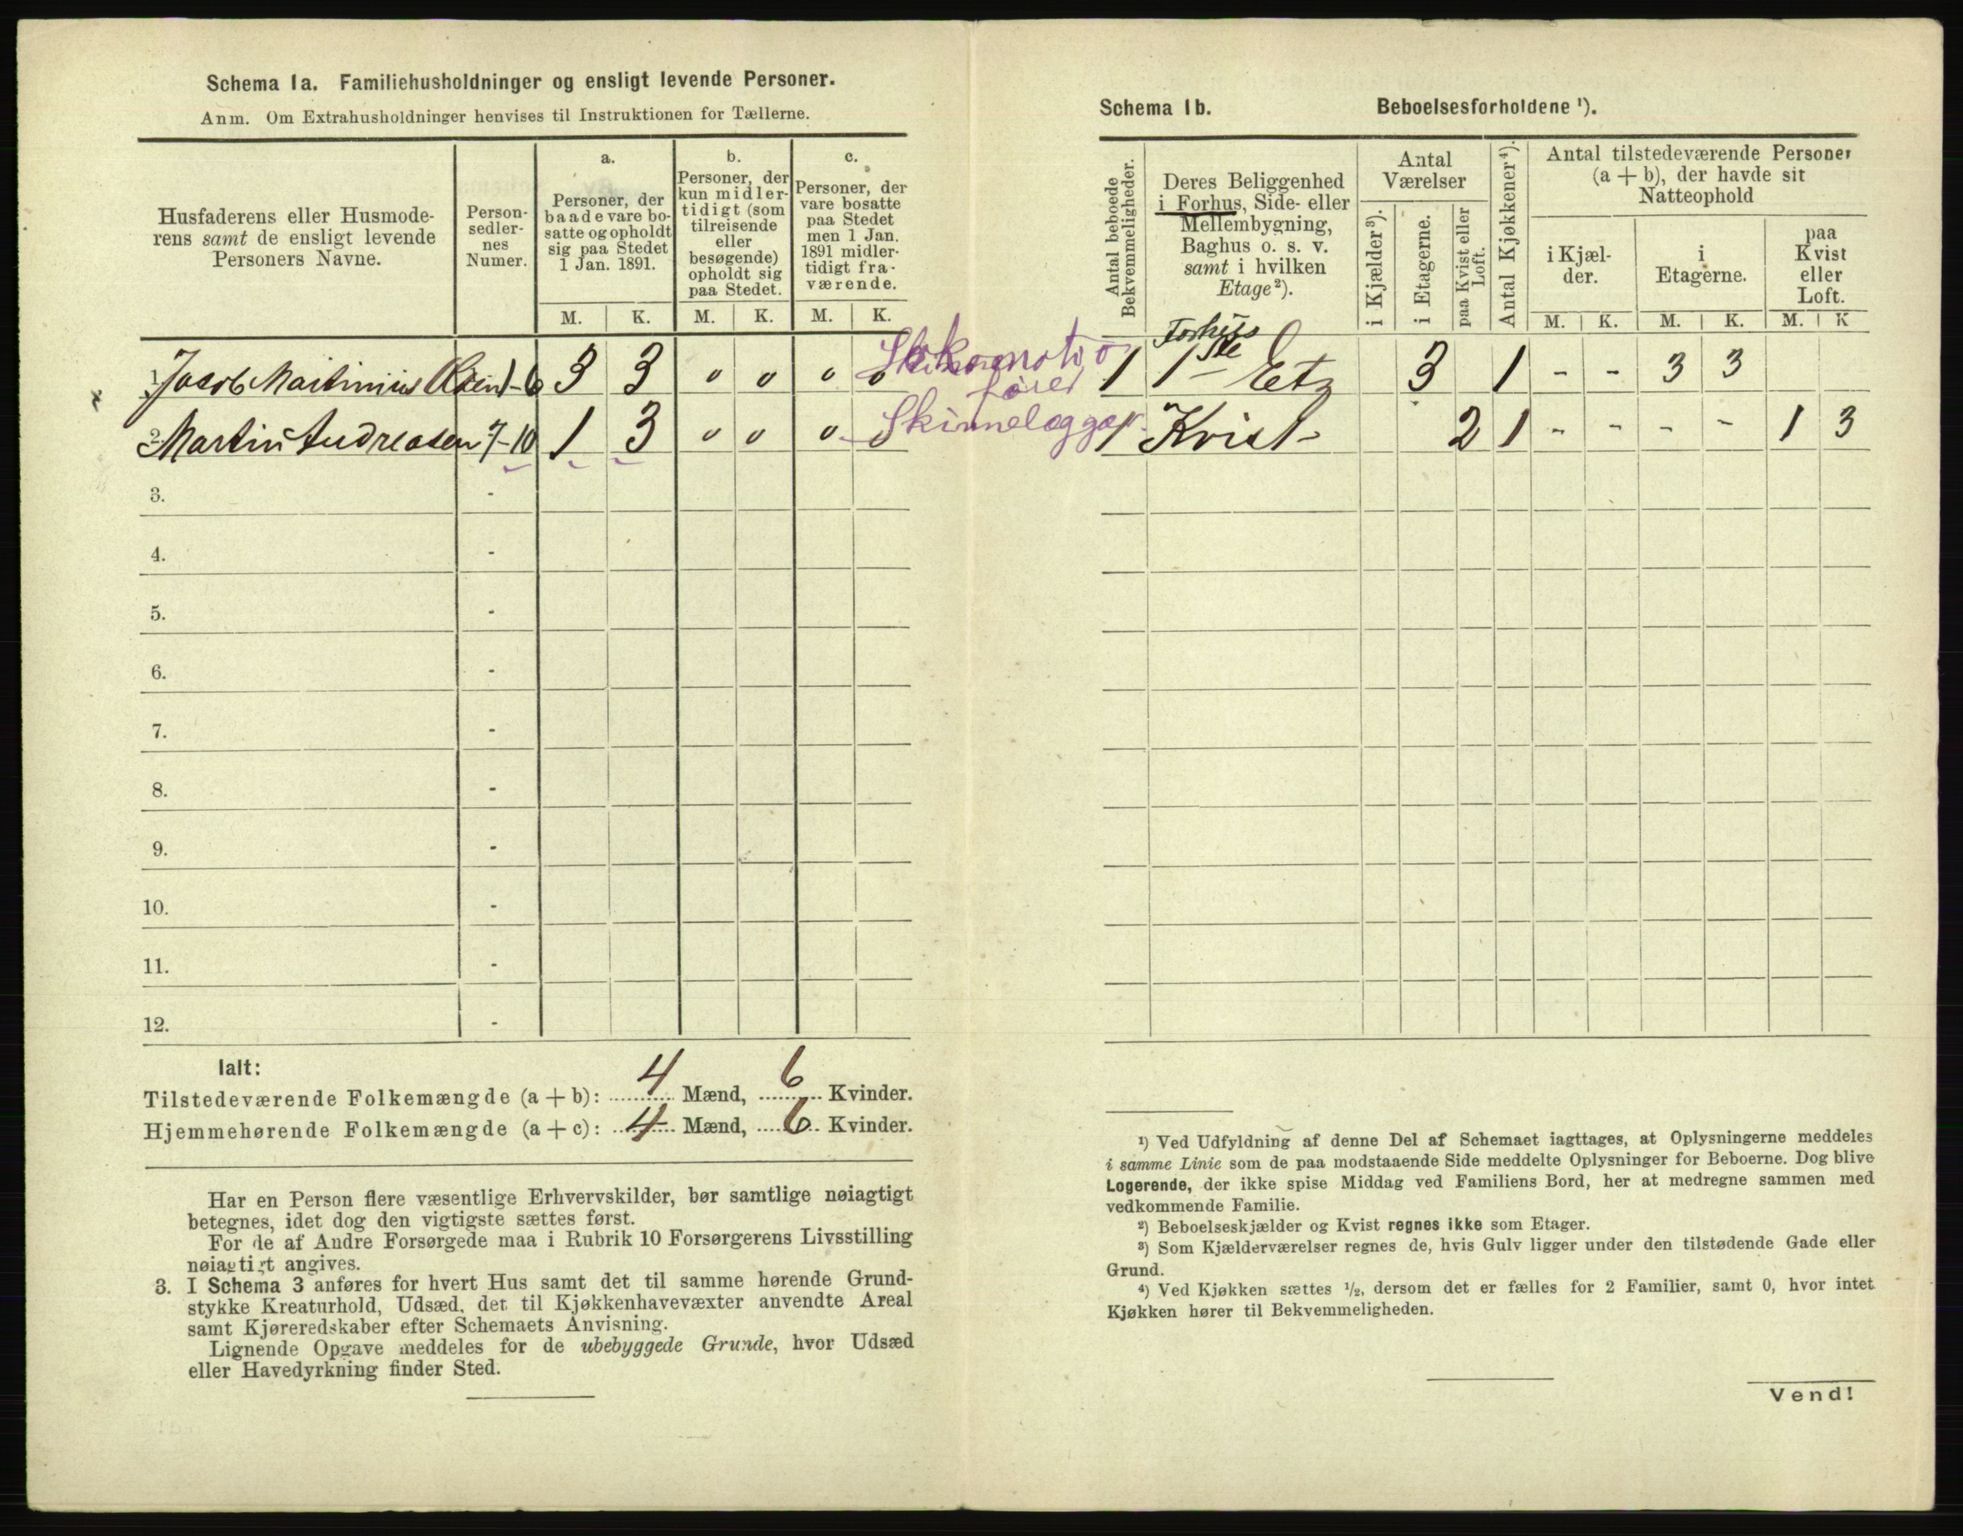 Schema 1a. Familiehusholdninger og ensligt levende Personer.
Anm. Om Extrahusholdninger henvises til Instruktionen for Tællerne.
Husfaderens eller Husmode-
rens samt de ensligt levende
Personers Navne.
Person-
sedler-
nes
Numer.
a.
Personer, der
baade vare bo-
satte og opholdt
sig paa Stedet
1 Jan. 1891.
b.
Personer, der
kun midler-
tidigt (som
tilreisende
eller
besøgende)
opholdt sig
paa Stedet.
c.
Personer, der
vare bosatte
paa Stedet
men 1 Jan.
1891 midler-
tidigt fra-
værende.
M. K. M. K. M. K.
1. Jacob Martinius Olsen 1-6 3 3 0 0 0 0
Lokomotiv
fører
2. Martin Andreasen 7-10 1 3 0 0 0 0 Skinnelægger
3. -
4. -
5. -
6. -
7. -
8. -
9. -
10. -
11. -
12. -
Ialt:
Tilstedeværende Folkemængde (a + b): 4 Mænd, 6 Kvinder.
Hjemmehørende Folkemængde (a + c): 4 Mænd, 6 Kvinder.
Har en Person flere væsentlige Erhvervskilder, bør samtlige nøiagtigt
betegnes, idet dog den vigtigste sættes først.
For de af Andre Forsørgede maa i Rubrik 10 Forsørgerens Livsstilling
nøiagtigt angives.
3. I Schema 3 anføres for hvert Hus samt det til samme hørende Grund-
stykke Kreaturhold, Udsæd, det til Kjøkkenhavevæxter anvendte Areal
samt Kjøreredskaber efter Schemaets Anvisning.
Lignende Opgave meddeles for de ubebyggede Grunde, hvor Udsæd
eller Havedyrkning finder Sted.
Schema 1b. Beboelsesforholdene ¹).
Antal beboede
Bekvemmeligheder.
Deres Beliggenhed
i Forhus, Side- eller
Mellembygning,
Baghus o. s. v.
samt i hvilken
Etage²).
Antal
Værelser
i Kjælder³).
i Etagerne.
paa Kvist eller
Loft.
Antal Kjøkkener⁴).
Antal tilstedeværende Personer
(a + b), der havde sit
Natteophold
i Kjæl-
der.
i
Etagerne.
paa
Kvist
eller
Loft.
M. K. M. K. M. K
Forhus
1 1ste Etg 3 1 - - 3 3
1 Kvist - 2 1 - - - - 1 3
¹) Ved Udfyldning af denne Del af Schemaet iagttages, at Oplysningerne meddeles
i samme Linie som de paa modstaaende Side meddelte Oplysninger for Beboerne. Dog blive
Logerende, der ikke spise Middag ved Familiens Bord, her at medregne sammen med
vedkommende Familie.
²) Beboelseskjælder og Kvist regnes ikke som Etager.
³) Som Kjælderværelser regnes de, hvis Gulv ligger under den tilstødende Gade eller
Grund.
⁴) Ved Kjøkken sættes ½, dersom det er fælles for 2 Familier, samt 0, hvor intet
Kjøkken hører til Bekvemmeligheden.
Vend!